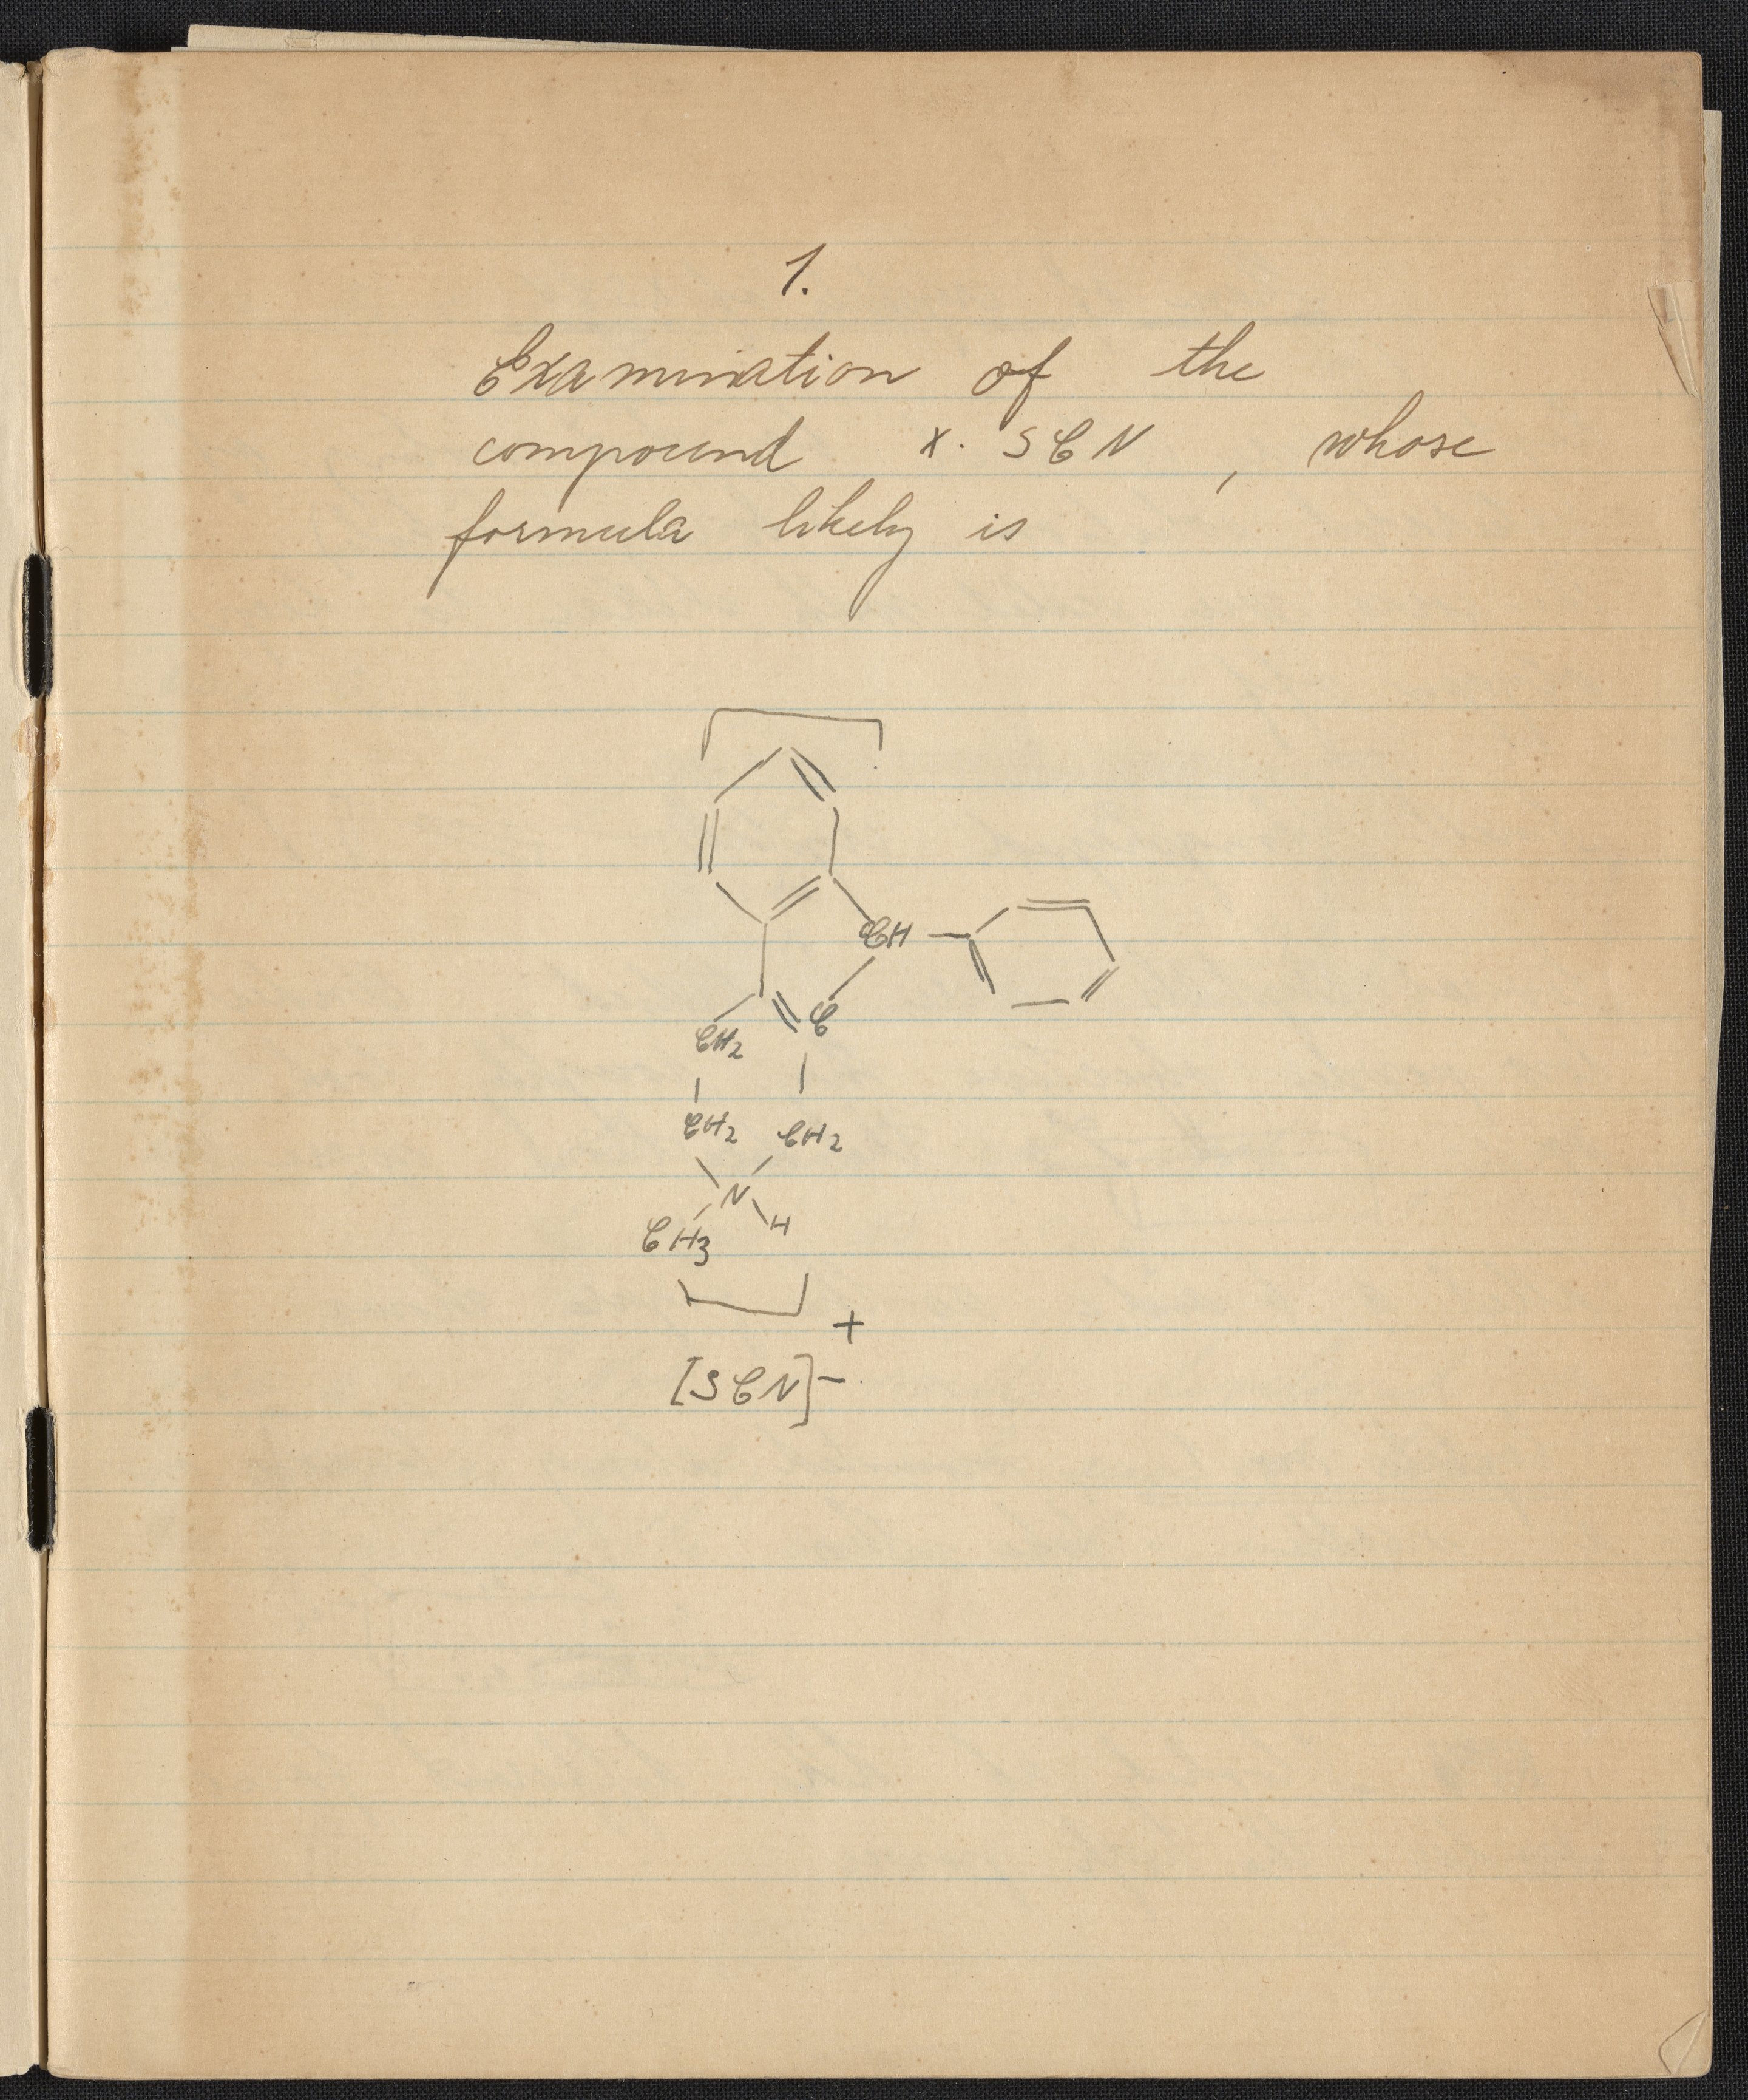 1.
Examination of the
compound x. SCN , whose
formula likely is
CH
C
CH2
CH2 CH2
N
CH3 H
+
[SCN]-